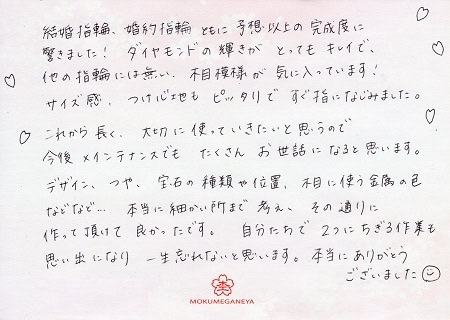 結婚指輪、婚約指輪 ともに 予想以上の 完成度に
驚きました! ダイヤモンドの輝きが とっても キレイで、
他の指輪には無い、木目模様が 気に入っています!
サイズ感、つけ心地も ピッタリで すぐ指になじみました。
これから 長く、大切に使っていきたいと思うので
今後 メインテナンスでも たくさん お世話になると思います。
デザイン、つや、宝石の種類や位置、木目に使う金属の色
などなど… 本当に細かい所まで考え、その通りに
作って頂けて 良かったです。 自分たちで 2つにちぎる作業も
思い出になり 一生忘れないと思います。本当にありがとう
ございました
MOKUMEGANEYA